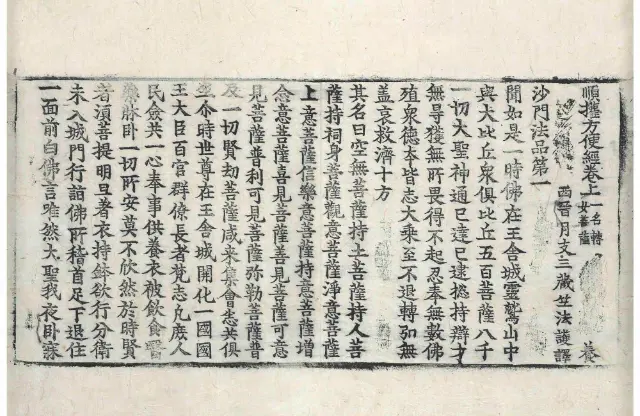 順權方便經卷上 一名轉女菩薩 養
西晉月支三藏竺法護譯
沙門法品第一
聞如是一時佛在王舍城靈鷲山中
與大比丘衆俱比丘五百菩薩八千
一切大聖神通已達已逮揔持辯才
無㝵獲無所畏得不起忍奉無數佛
殖衆德本皆志大乘至不退轉弘無
蓋哀救濟十方
其名曰空無菩薩持土菩薩持人菩
薩持祠身菩薩觀意菩薩淨意菩薩
上意菩薩信樂意菩薩持意菩薩增
念意菩薩喜見菩薩善見菩薩可意
見菩薩普利可見菩薩弥勒菩薩普
及一切賢劫菩薩咸来集會悉共俱
坐尒時世尊在王舍城開化一國國
王大臣百官群僚長者梵志凡庶人
民僉共一心奉事供養衣被飲食醫
藥牀卧一切所安莫不欣然於時賢
者須菩提明旦著衣持鉢欲行分衛
未入城門行詣佛所稽首足下退住
一面前白佛言唯然大聖我夜卧寐